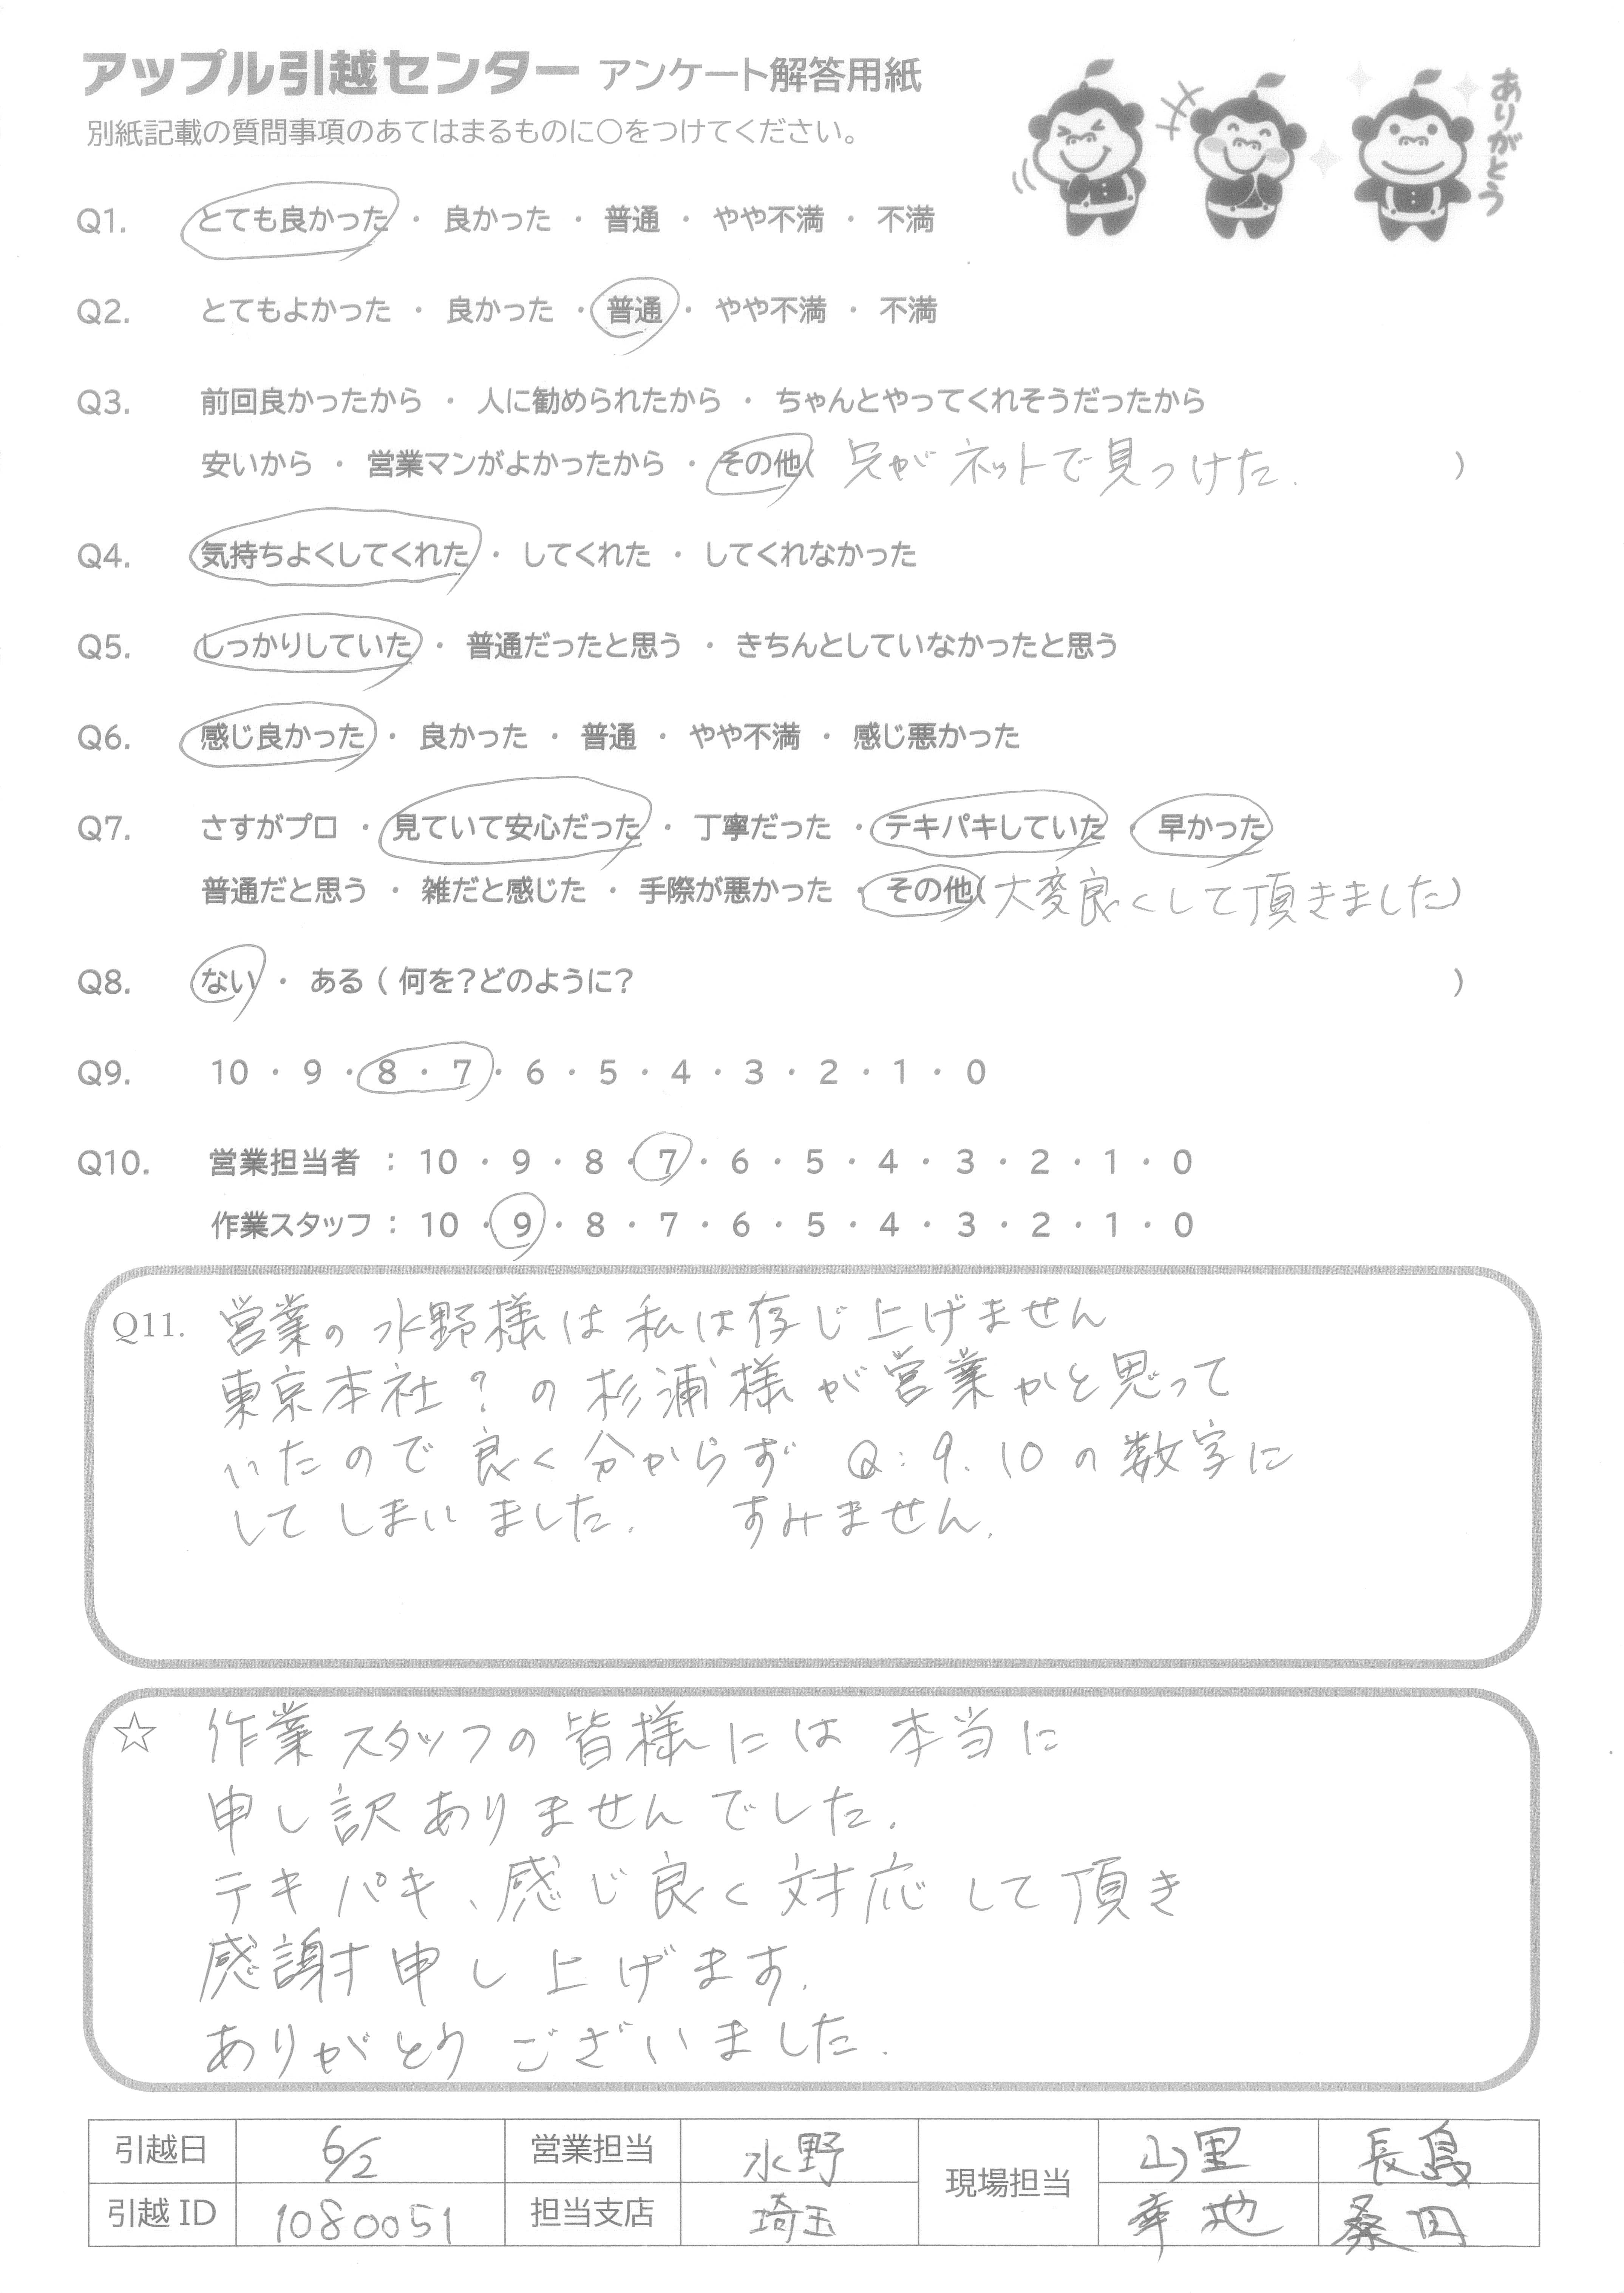 アップル引越センター アンケート解答用紙
別紙記載の質問事項のあてはまるものに○をつけてください。
ありがとう
Q1. とても良かった ・ 良かった ・ 普通 ・ やや不満 ・ 不満
Q2. とてもよかった ・ 良かった ・ 普通 ・ やや不満 ・ 不満
Q3. 前回良かったから ・ 人に勧められたから ・ ちゃんとやってくれそうだったから
安いから ・ 営業マンがよかったから ・ その他( 兄がネットで見つけた. )
Q4. 気持ちよくしてくれた ・ してくれた ・ してくれなかった
Q5. しっかりしていた ・ 普通だったと思う ・ きちんとしていなかったと思う
Q6. 感じ良かった ・ 良かった ・ 普通 ・ やや不満 ・ 感じ悪かった
Q7. さすがプロ ・ 見ていて安心だった ・ 丁寧だった ・ テキパキしていた ・ 早かった
普通だと思う ・ 雑だと感じた ・ 手際が悪かった ・ その他(大変良くして頂きました)
Q8. ない ・ ある ( 何を?どのように? )
Q9. 10 ・ 9 ・ 8 ・ 7 ・ 6 ・ 5 ・ 4 ・ 3 ・ 2 ・ 1 ・ 0
Q10. 営業担当者 : 10 ・ 9 ・ 8 ・ 7 ・ 6 ・ 5 ・ 4 ・ 3 ・ 2 ・ 1 ・ 0
作業スタッフ : 10 ・ 9 ・ 8 ・ 7 ・ 6 ・ 5 ・ 4 ・ 3 ・ 2 ・ 1 ・ 0
Q11. 営業の水野様は私は存じ上げません
東京本社?の杉浦様が営業かと思って
いたので良く分からず Q:9.10の数字に
してしまいました. すみません.
☆ 作業スタッフの皆様には本当に
申し訳ありませんでした.
テキパキ、感じ良く対応して頂き
感謝申し上げます.
ありがとうございました.
引越日 6/2 営業担当 水野 現場担当 山里 長島
引越ID 1080051 担当支店 埼玉 幸地 桑田